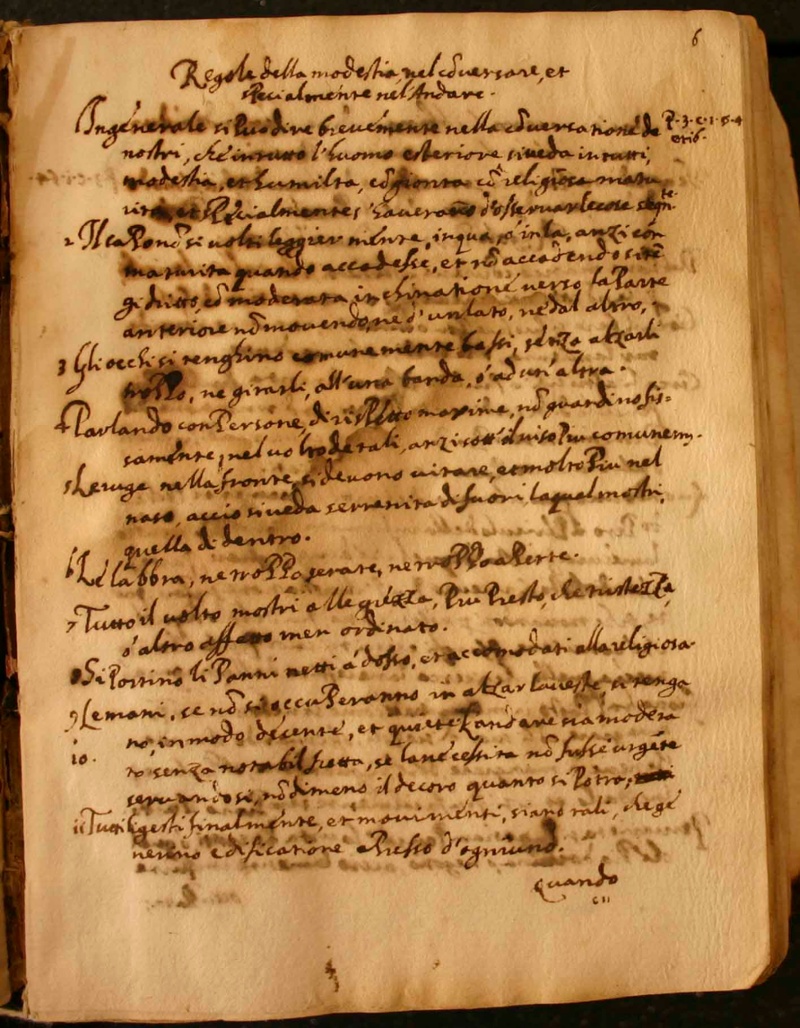 6
Regole della modestia, nel cõversare, et
specialmente nel Andare.
In genérale si Può dire brevemente nella cõversatione de
P. 3. c. 1. §. 4
nostri, che in tutto l'huomo esteriore si veda in tutti,
modestia, et humilta, cõgionta cõ religiosa matu
rita, et specialmente s'haverano d'osservar le cose segṇte.
2 Il capo nõ si volti leggiermẽte, in qua, o' in la, anzi cõn
maturita quando accadesse, et nõ accadẽdo si tẽ
ga dritto, cõ moderata inclinatione verso la Parte
anteriore nõ movendone d'un lato, ne dal altro,
3 Gli occhi si tenghino comunemente bassi, sẽnza alzarli
troppo, ne girarli, all'una banda, o' ad un'altra.
4 Parlando con Persone, di rispetto maxime, nõ guardino fis=
samente, nel volto de tali, anzi sott'il viso Piu comunem.
5 Le ruge nella fronte, si devono vitare, et molto Piu nel
naso, accio si veda serrenita di fuori, laqual mostri,
quella di dentro.
6 Le labbra, ne troppo serate, ne troppo aperte.
7 Tutto il volto mostri allegrezza, Piu Presto, che tristezza,
o' altro affetto men ordinato.
8 Si Portino li Panni netti à dosso, et accomodati alla religiosa.
9 Le mani, se nõ si occuperanno in alzar la veste, si tenga
no, in modo decente, et quiete L'andare sia modera
10.
to senza notabil fretta, se la necessita nõ fusse urgẽte
servandosi, nõdimeno il decoro quanto si Potra,
11 Tutti li gesti finalmente, et movimenti, siano tali, che gẽ
nerino edificatione apresso d'ogniuno.
Quando